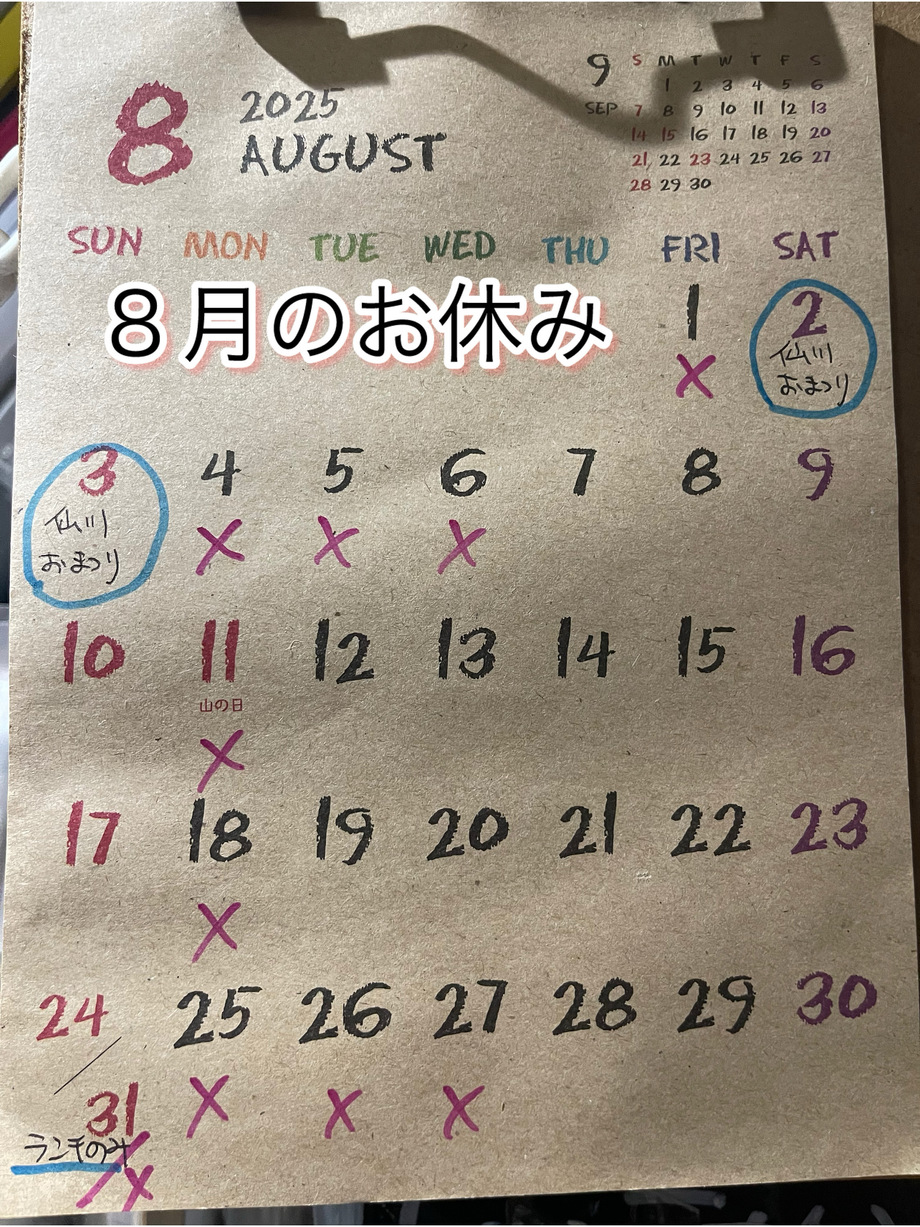 8
2025
AUGUST
9
SEP
S M T W T F S
1 2 3 4 5 6
7 8 9 10 11 12 13
14 15 16 17 18 19 20
21 22 23 24 25 26 27
28 29 30
SUN MON TUE WED THU FRI SAT
8月のお休み
1 2
X 仙川
おまつり
3 4 5 6 7 8 9
仙川 X X X
おまつり
10 11 12 13 14 15 16
山の日
X
17 18 19 20 21 22 23
X
24 25 26 27 28 29 30
31 X X X
ランチのみ
X X